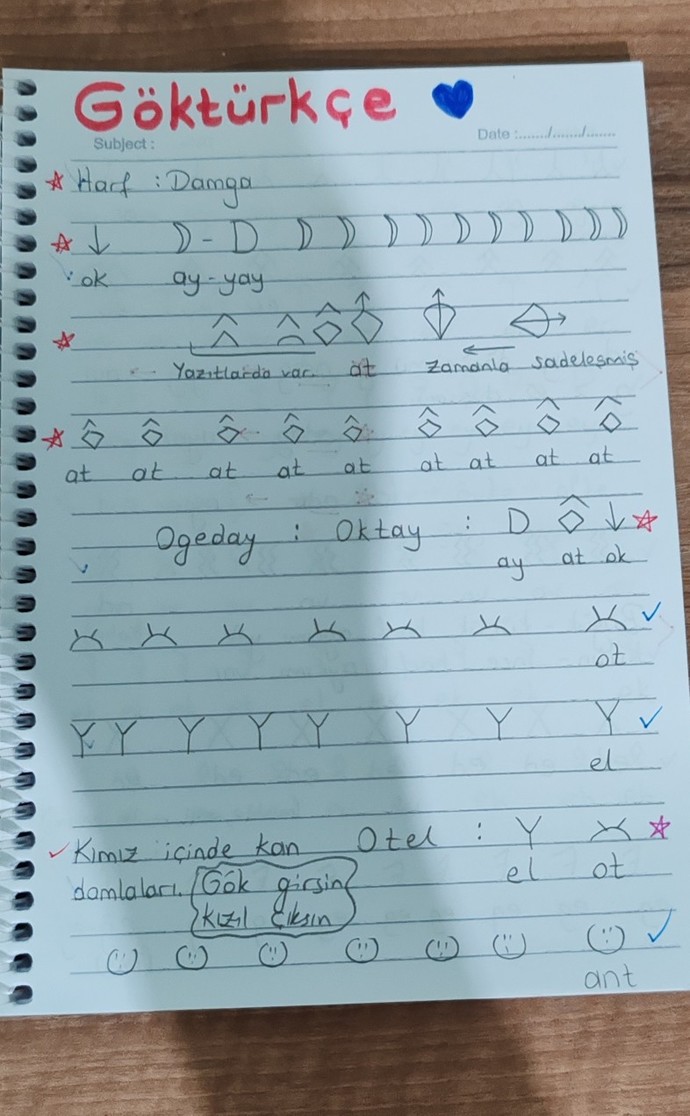 Göktürkçe
Subject :
Date :......./......./.......
Harf : Damga
↓ D - D D D D D D D D D D D
ok ay - yay
Yazıtlarda var. at zamanla sadeleşmiş
at at at at at at at at at
Ogeday : Oktay : D ↓
ay at ok
ot
Y Y Y Y Y Y Y Y
el
Kımız içinde kan Otel : Y
damlaları. Gök girsin el ot
kızıl çıksın
ant